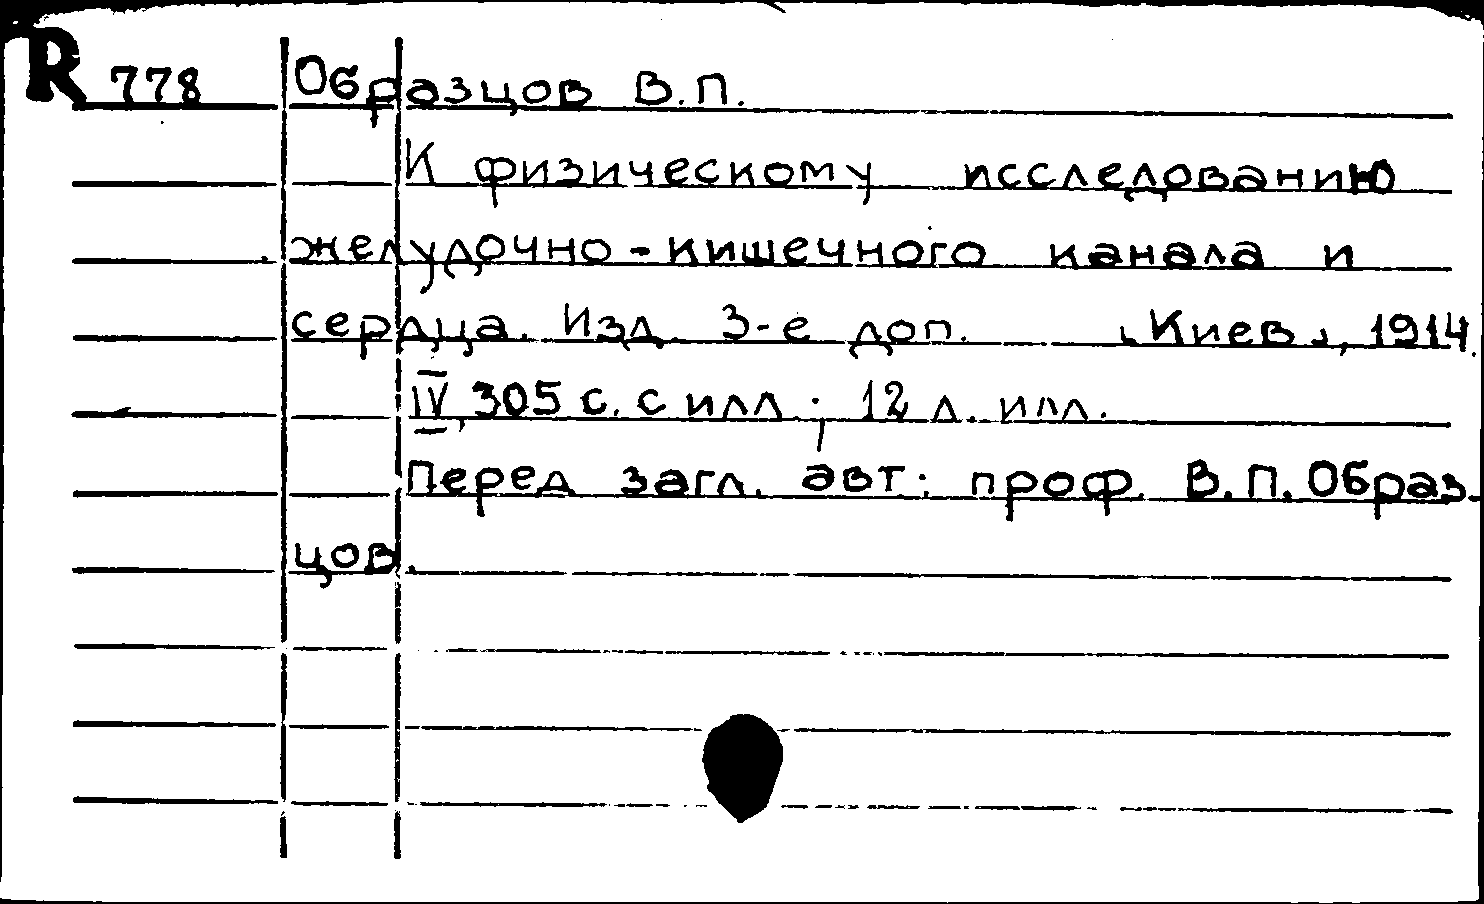 R 778 Образцов В.П.
К физическому исследованию
желудочно-кишечного канала и
сердца. Изд. 3-е доп. [Киев], 1914.
IV, 305 с. с илл.; 12 л. илл.
Перед загл. авт.: проф. В.П. Образ-
цов.